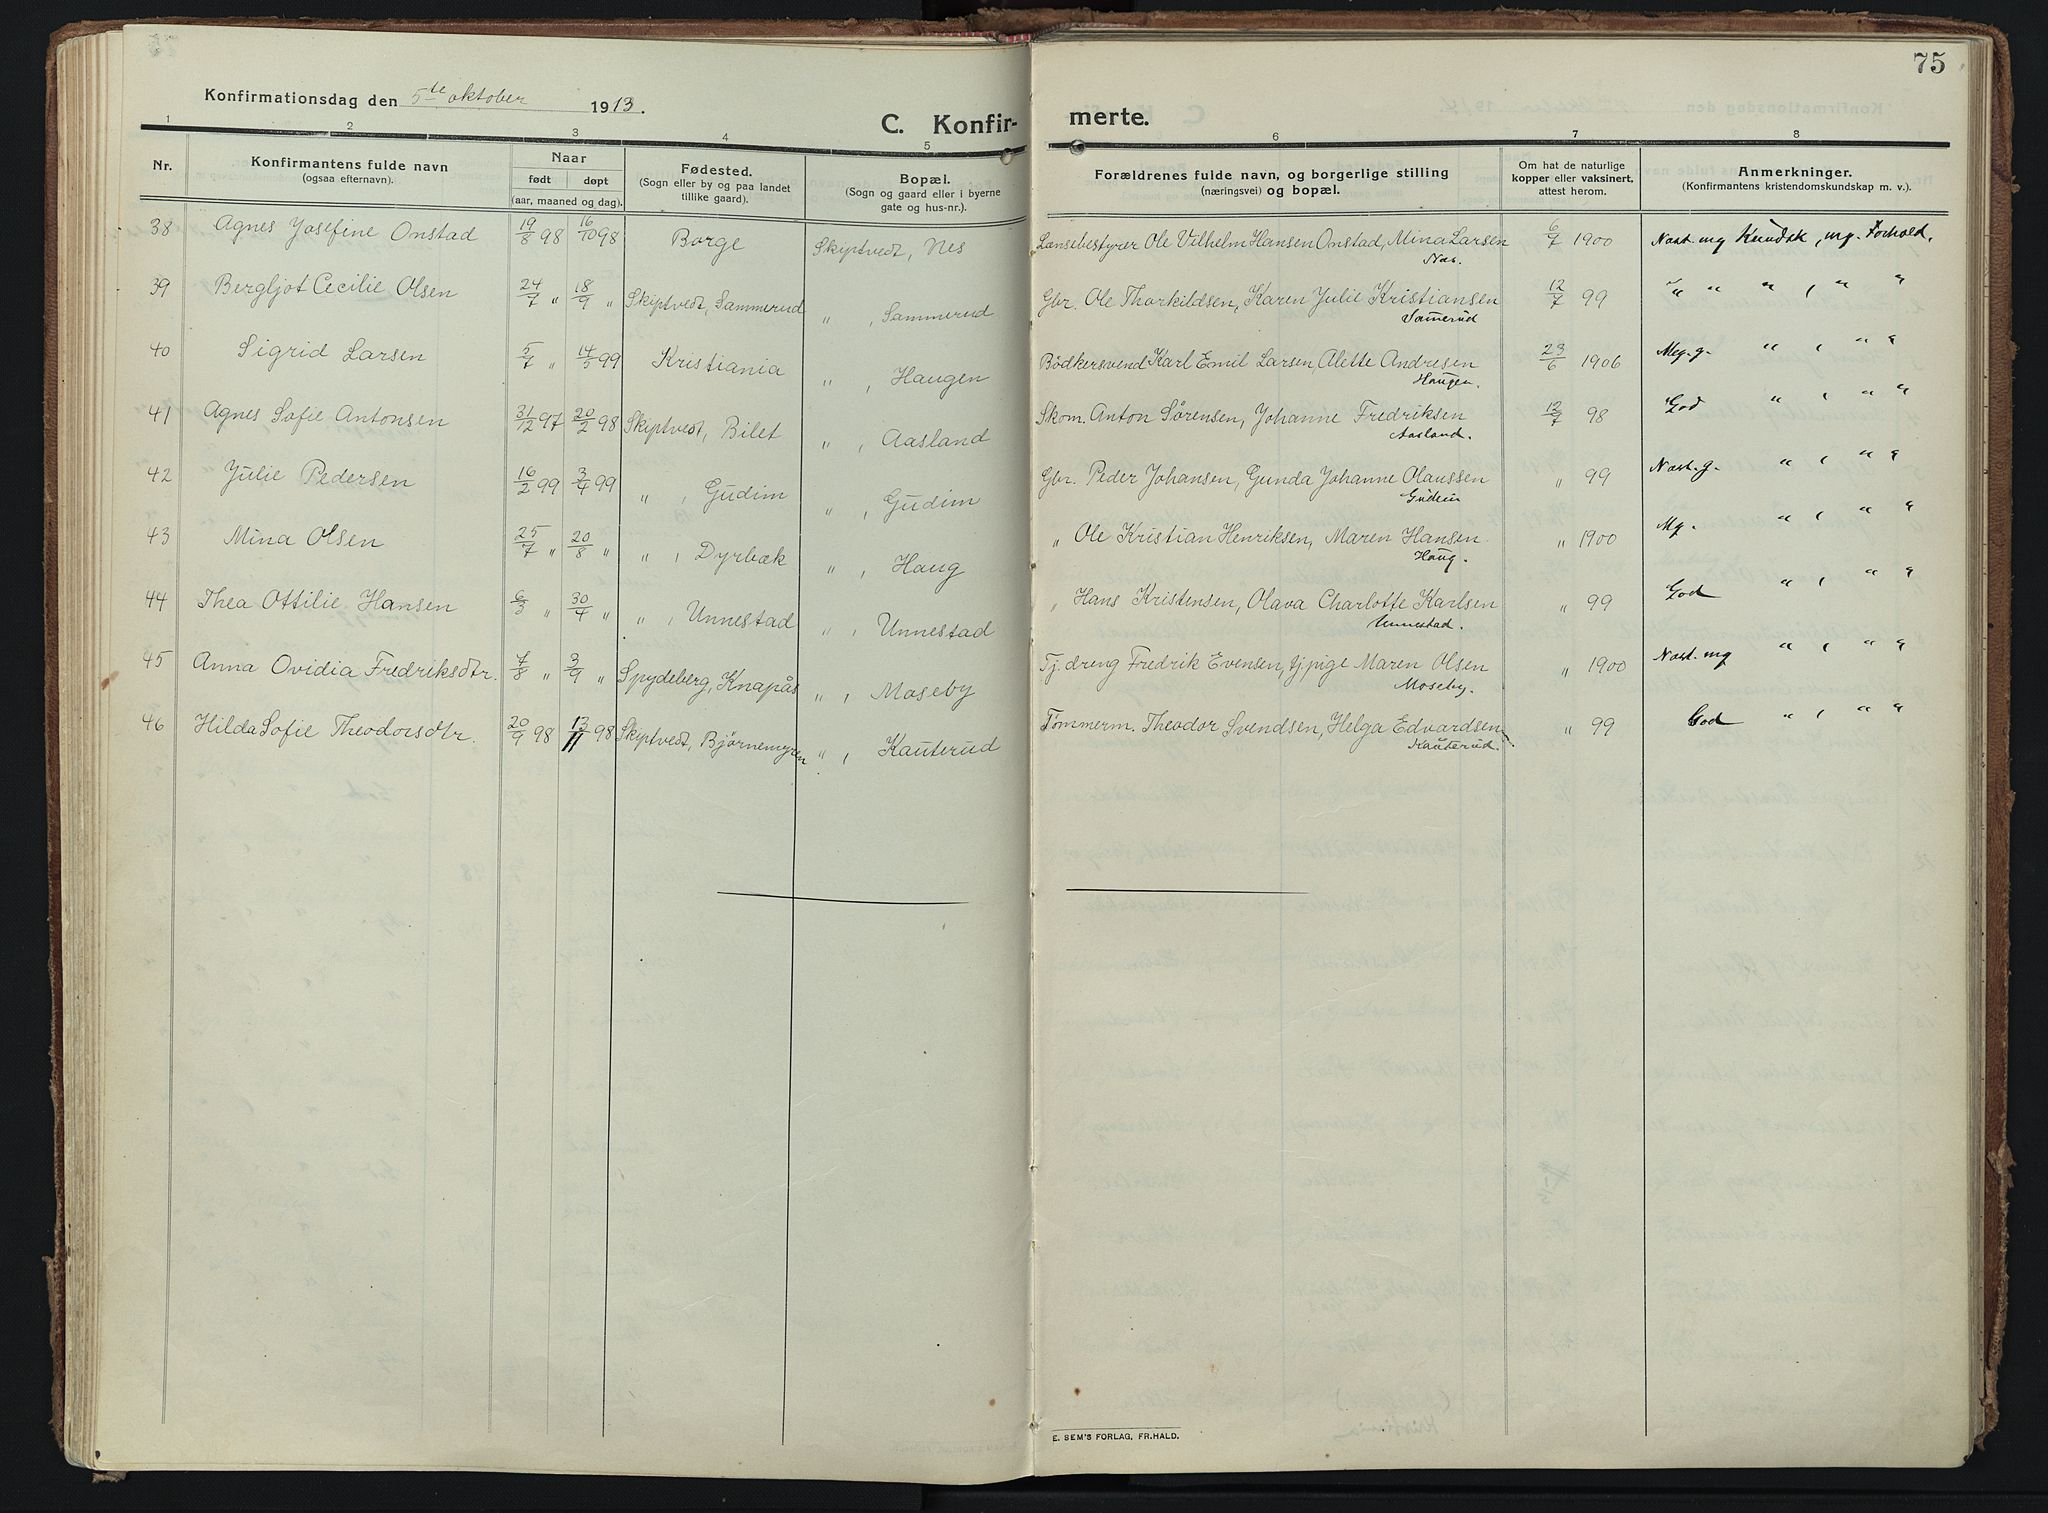 75
Konfirmationsdag den 5te oktober 1913.
C. Konfir- merte.
1 2 3 4 5 6 7 8
Nr. Konfirmantens fulde navn (ogsaa efternavn). Naar født døpt (aar, maaned og dag). Fødested. (Sogn eller by og paa landet tillike gaard). Bopæl. (Sogn og gaard eller i byerne gate og hus-nr.). Forældrenes fulde navn, og borgerlige stilling (næringsvei) og bopæl. Om hat de naturlige kopper eller vaksinert, attest herom. Anmerkninger. (Konfirmantens kristendomskundskap m. v.).
38 Agnes Josefine Onstad 19/8 98 16/10 98 Borge Skiptvedt, Nes Lænsebestyrer Ole Vilhelm Hansen Onstad, Mina Larsen Næs. 6/7 1900 Næst. mg Kundsk, mg. Forhold.
39 Bergljot Cecilie Olsen 24/7 " 18/9 " Skiptvedt, Sammerud " , Sammerud Gbr. Ole Thorkildsen, Karen Julie Kristiansen Samerud 12/7 99 " " " , " "
40 Sigrid Larsen 5/7 " 14/5 99 Kristiania " , Haugen Bödkersvend Karl Emil Larsen, Alette Andresen Haugen. 23/6 1906 Meg. g. " , " "
41 Agnes Sofie Antonsen 31/12 97 20/2 98 Skiptvedt, Bilet " , Aasland Skom. Anton Sørensen, Johanne Fredriksen Aasland. 12/7 98 God " , " "
42 Julie Pedersen 16/2 99 3/4 99 " , Gudim " , Gudim Gbr. Peder Johansen, Gunda Johanne Olaussen Gudim " 99 Næst. g. " , " "
43 Mina Olsen 25/7 " 20/8 " " , Dyrbæk " , Haug " Ole Kristian Henriksen, Maren Hansen Haug. " 1900 Mg. " , " "
44 Thea Ottilie Hansen 6/3 " 30/4 " " , Unnestad " , Unnestad " Hans Kristensen, Olava Charlotte Karlsen Unnestad. " 99 God " , " "
45 Anna Ovidia Fredriksdtr. 7/8 " 3/9 " Spydeberg, Knapås " , Moseby Tj. dreng Fredrik Evensen, tj. pige Maren Olsen Moseby. " 1900 Næst. mg " , " "
46 Hilda Sofie Theodorsdtr. 20/9 98 13/11 98 Skiptvedt, Bjørnemyren " , Kauterud Tømmerm. Theodor Svendsen, Helga Edvardsen Kauterud. " 99 God " , " "
E. SEM'S FORLAG, FR.HALD.